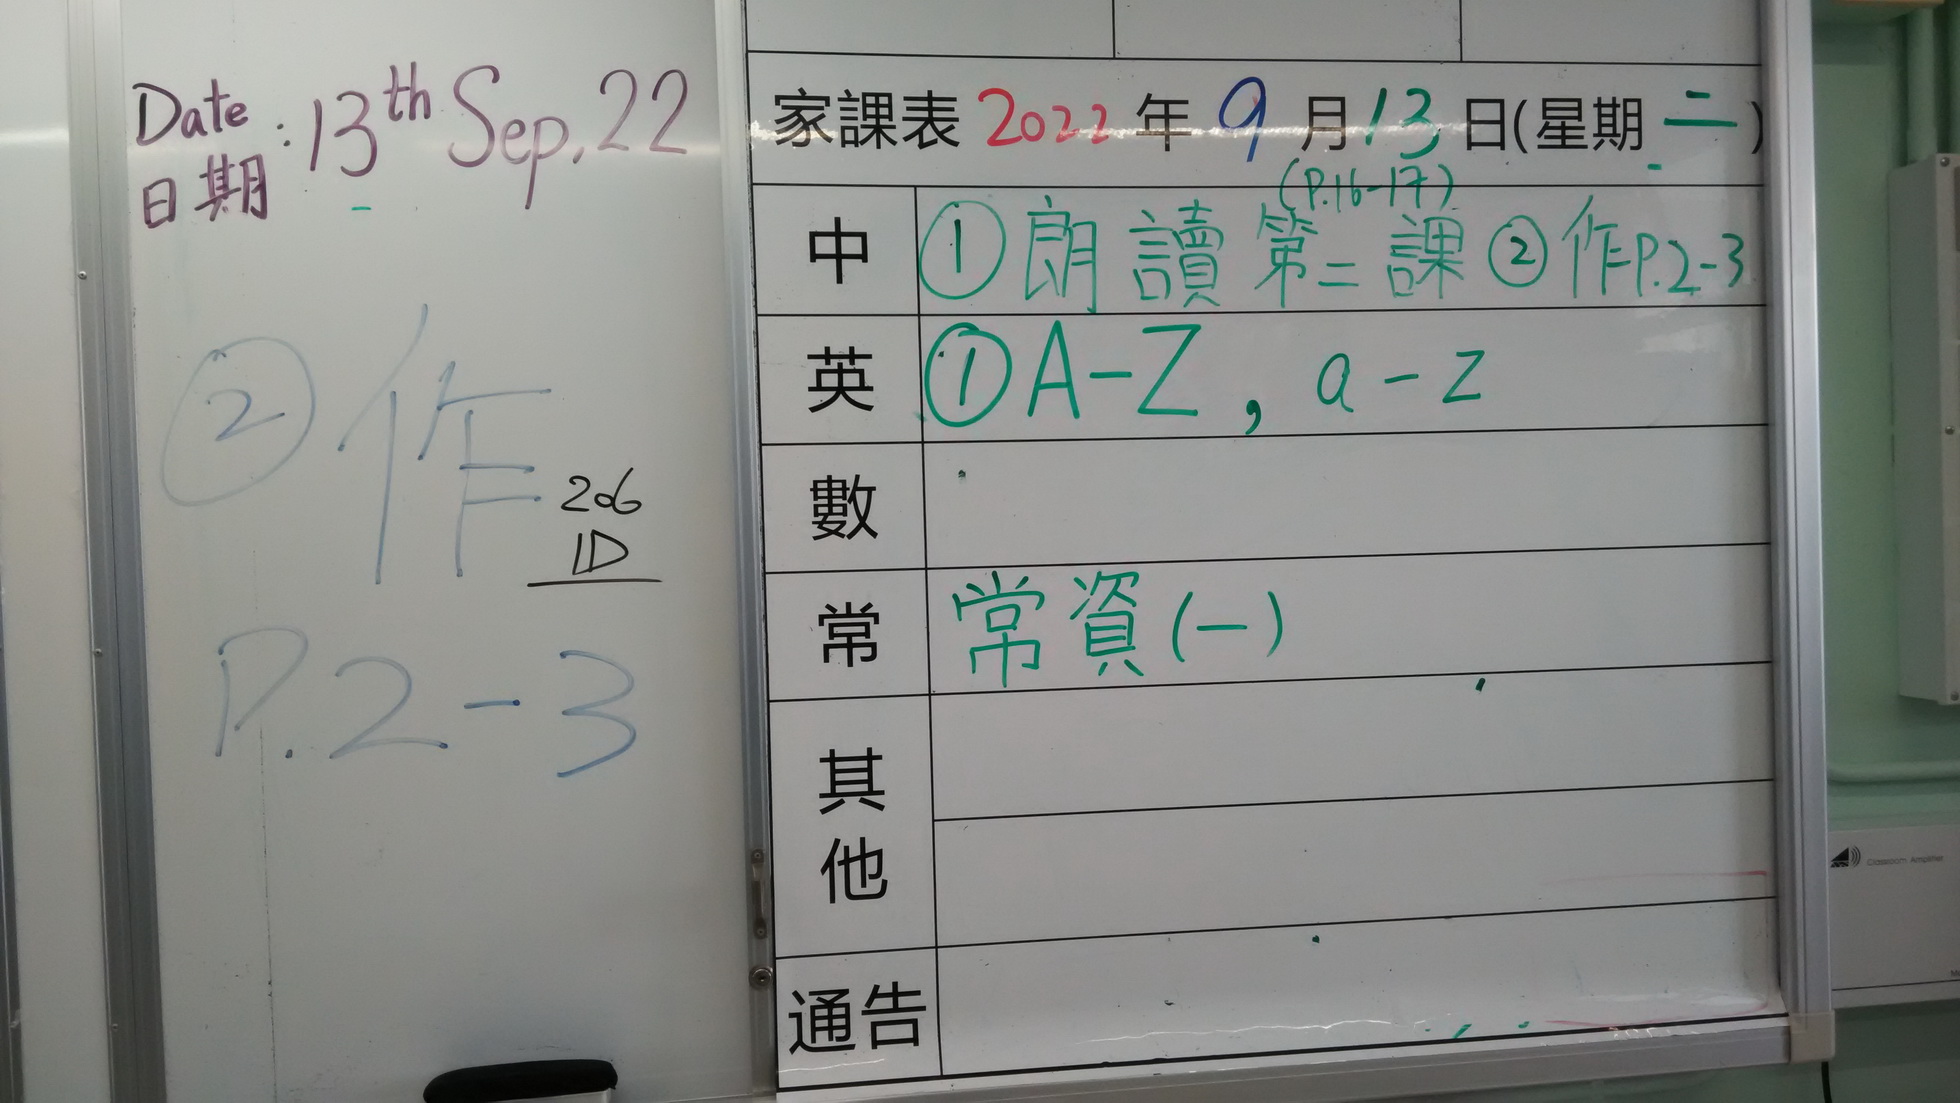 Date
日期 : 13th Sep, 22
② 作
206
1D
P.2-3
家課表 2022 年 9 月 13 日(星期 二 )
(P.16-17)
中 ① 朗讀第二課 ② 作P.2-3
英 ① A-Z, a-z
數
常 常資(一)
其他
通告
Classroom Amplifier